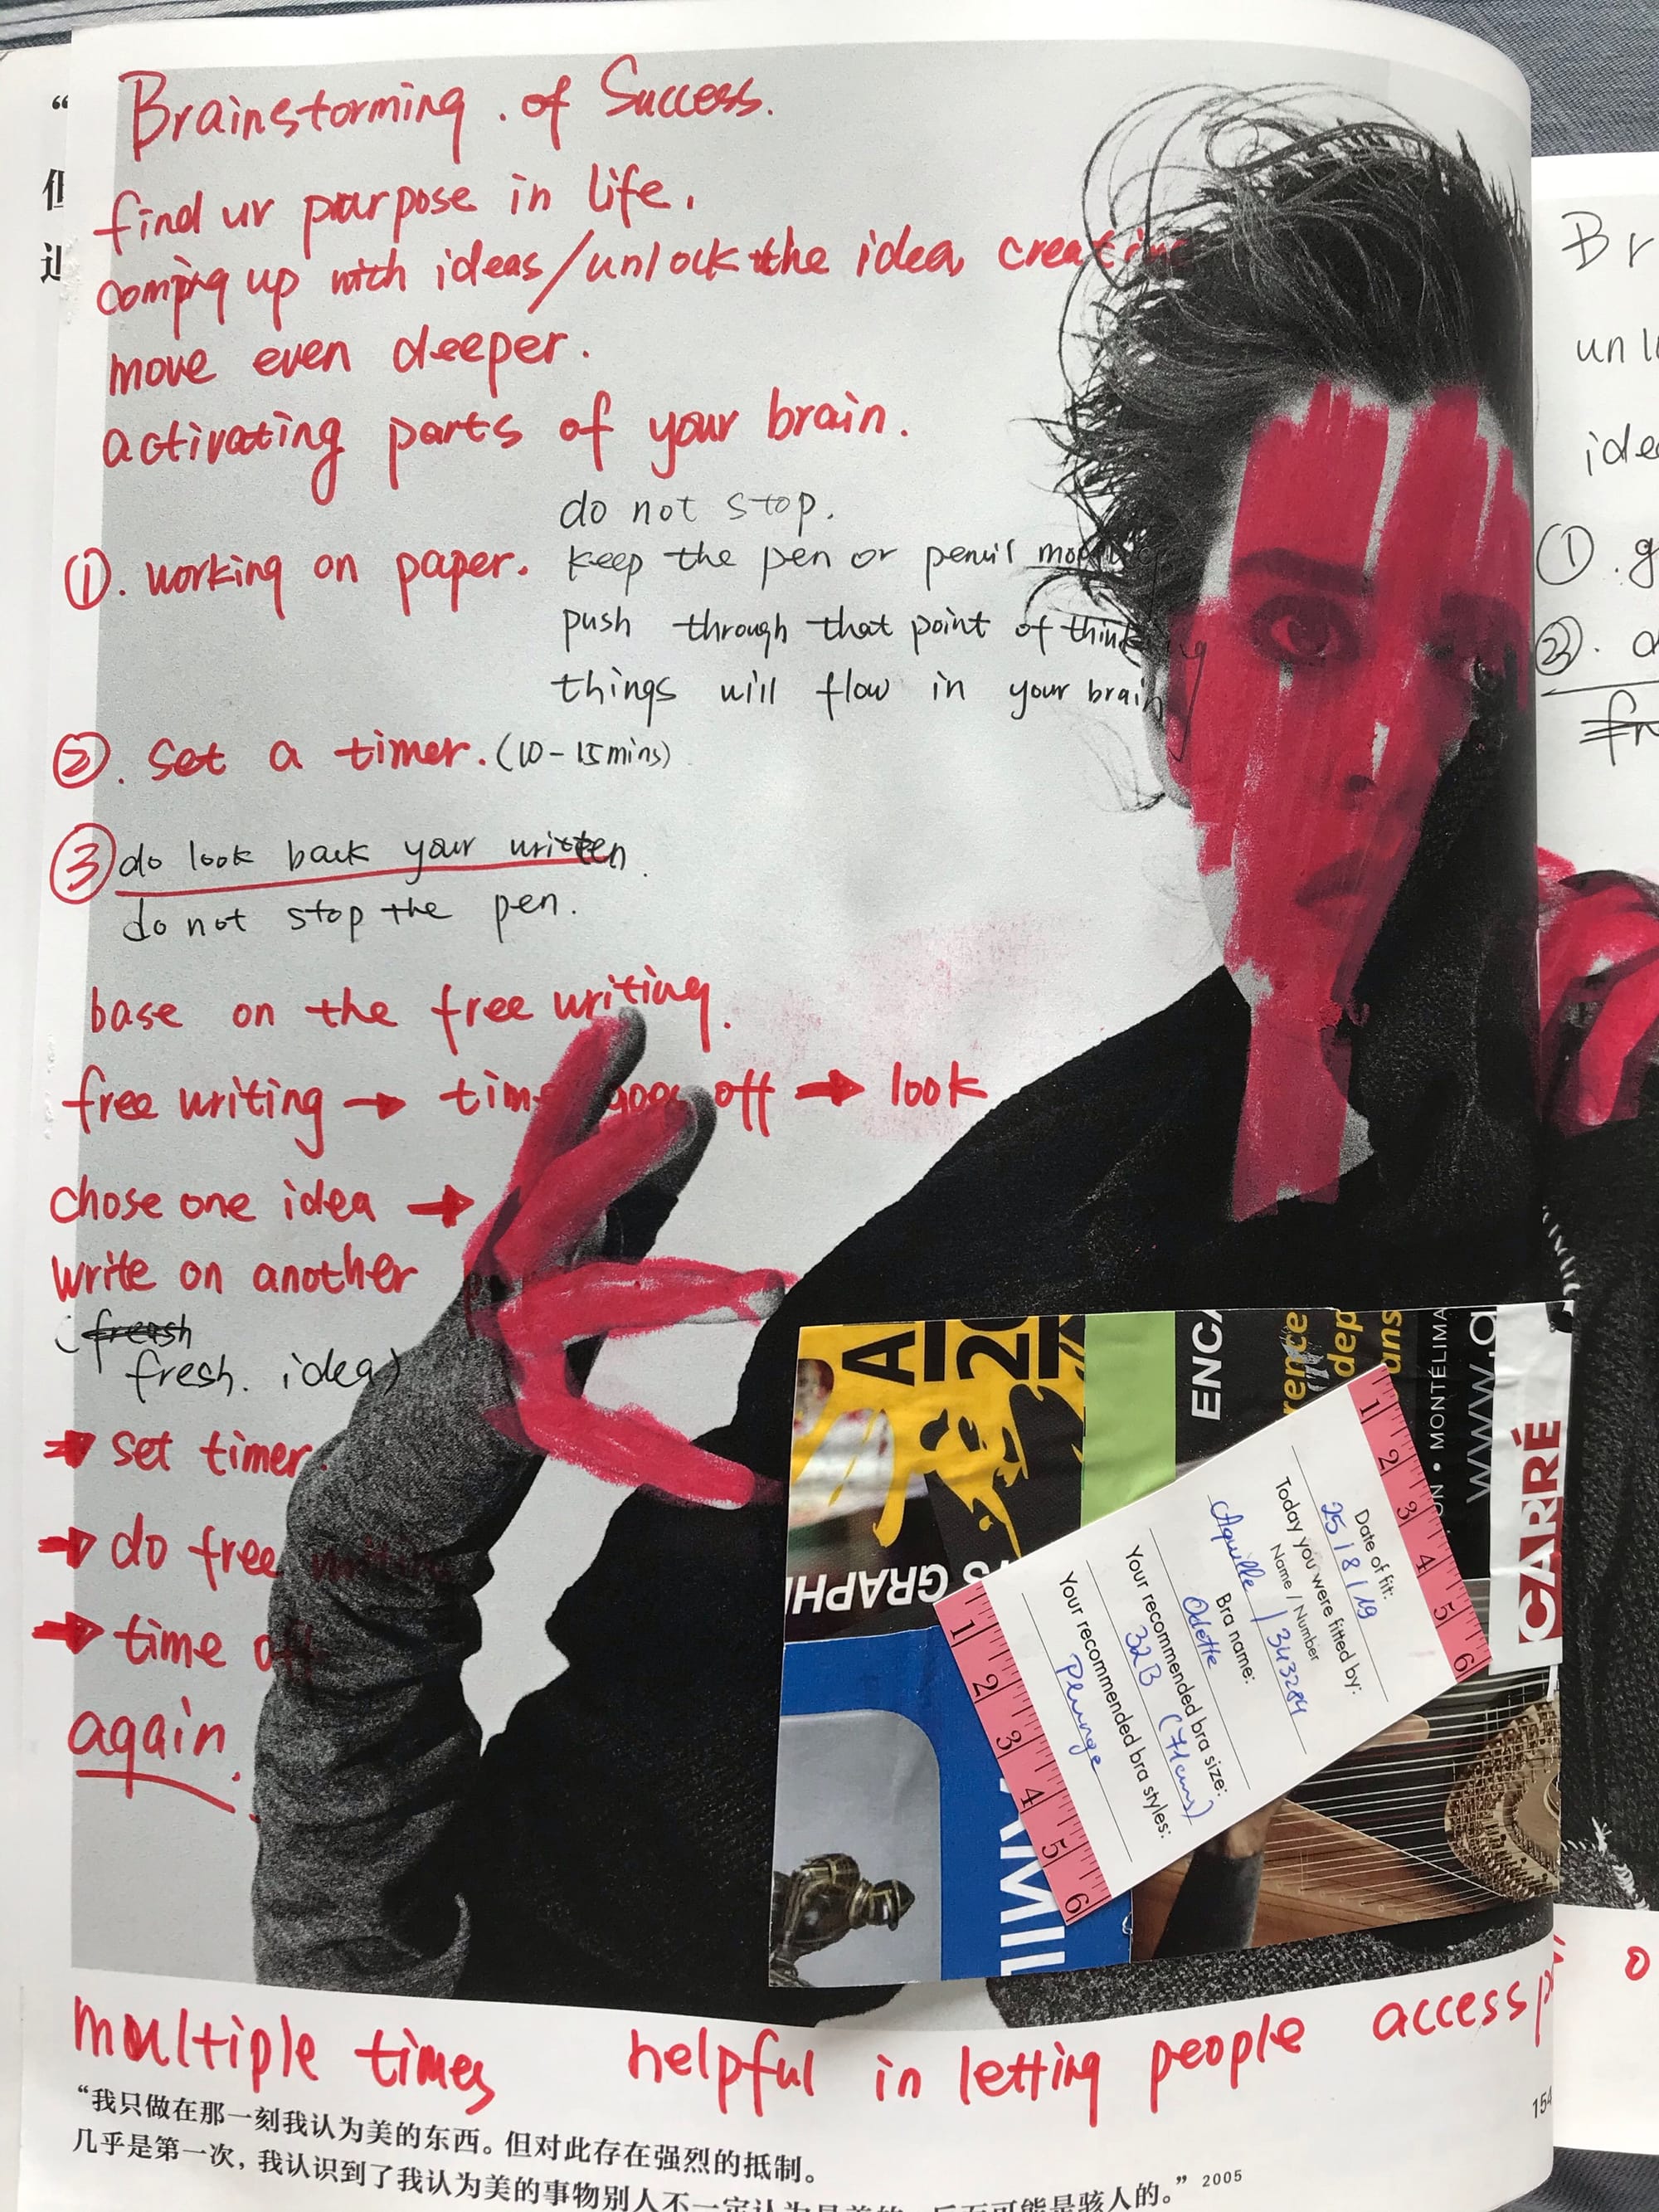 Brainstorming. of Success.
find ur purpose in life.
coming up with ideas/unlock the idea, creative
move even deeper.
activating parts of your brain.
do not stop.
①. working on paper.
keep the pen or pencil moving
push through that point of thinking
things will flow in your brain
②. set a timer. (10-15mins)
③ do look back your written.
do not stop the pen.
base on the free writing.
free writing → time goes off → look
chose one idea →
write on another
(
fresh. idea)
→ set timer.
→ do free writing
→ time off
again.
multiple times helpful in letting people access
“我只做在那一刻我认为美的东西。但对此存在强烈的抵制。
几乎是第一次，我认识到了我认为美的事物别人不一定认为是美的，反而可能是骇人的。” 2005
154
“
Br
unlo
idea
①. g
②. d
o
A
20
ENCA
rence
dep
ans
ON • MONTÉLIMA
www.a
CARRÉ
S GRAPHI
1 2 3 4 5 6
Date of fit:
25/8/19
Today you were fitted by:
Name / Number
Aquille / 343284
Bra name:
Odette
Your recommended bra size:
32B (71cms)
Your recommended bra styles:
Plunge
1 2 3 4 5 6